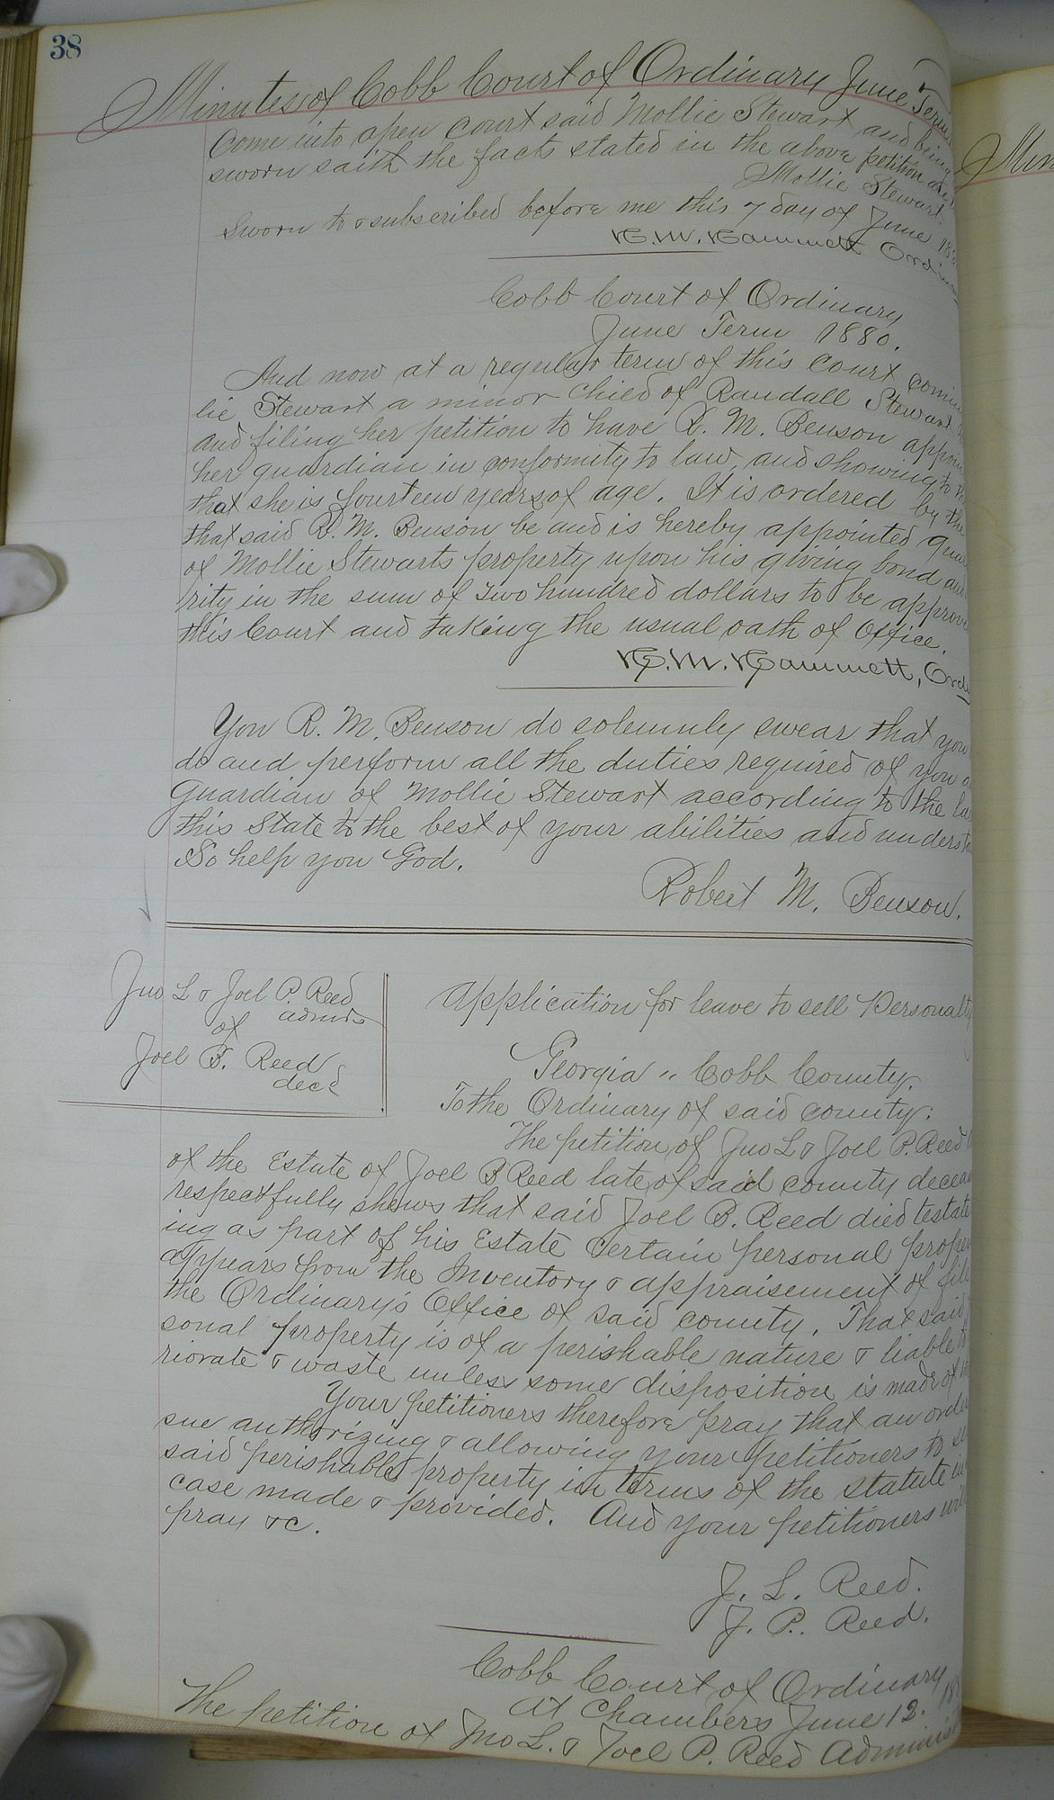 38
Minutes of Cobb Court of Ordinary June Term
Come into open Court said Mollie Stewart and being
sworn saith the facts stated in the above petition are
Mollie Stewart.
Sworn to & subscribed before me this 7 day of June 188
H. M. Hammett Ordin
Cobb Court of Ordinary
June Term 1880.
And now at a regular term of this Court comin
lie Stewart a minor child of Randall Stewart
and filing her petition to have R. M. Benson appoin
her guardian in conformity to law, and showing to th
that she is fourteen years of age. It is ordered by the
that said R. M. Benson be and is hereby appointed guar
of Mollie Stewarts property upon his giving bond and
rity in the sum of Two hundred dollars to be approve
this Court and taking the usual oath of Office.
H. M. Hammett, Ord
You R. M. Benson do solemnly swear that you
do and perform all the duties required of you a
Guardian of Mollie Stewart according to the la
this State to the best of your abilities and underst
So help you God.
Robert M. Benson.
Jno L & Joel P. Reed
admrs
of
Joel B. Reed
decd
Application for leave to sell Personalty
Georgia " Cobb County.
To the Ordinary of said county:
The petition of Jno L & Joel P. Reed
of the Estate of Joel B Reed late of said county deceas
respectfully shews that said Joel B. Reed died testate
ing as part of his Estate certain personal proper
appears from the Inventory & appraisement of file
the Ordinary's Office of said county. That said
sonal property is of a perishable nature & liable to
riorate & waste unless some disposition is made of
Your petitioners therefore pray that an order
sue authorizing & allowing your petitioners to se
said perishable property in terms of the statute in
case made & provided. And your petitioners will
pray &c.
J. L. Reed.
J. P. Reed.
Cobb Court of Ordinary
At Chambers June 12. 18
The petition of Jno L. & Joel P. Reed Adminis
Min